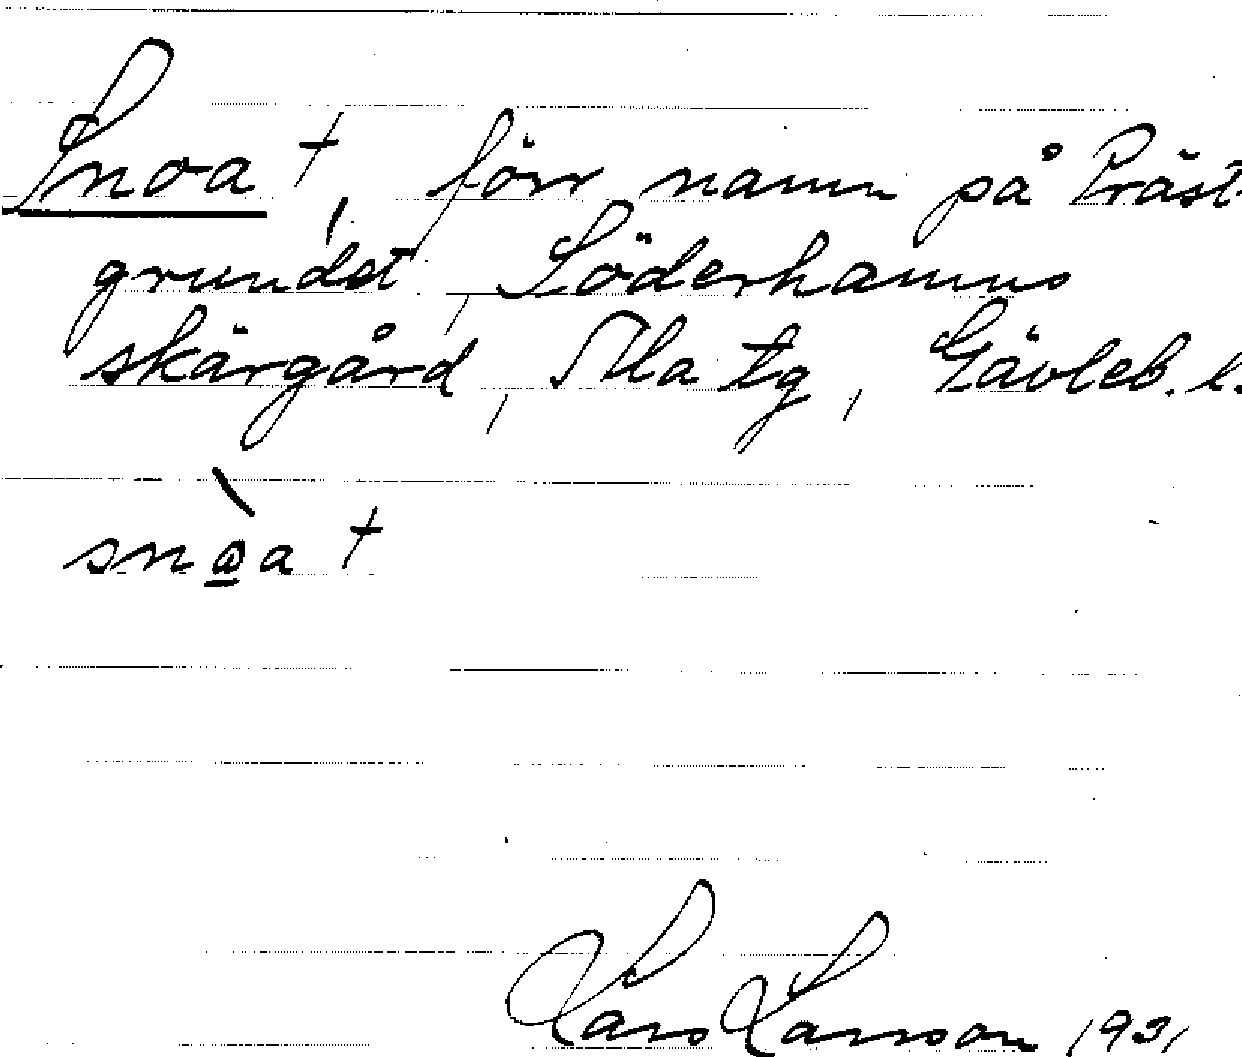 Snoa †, förr namn på Präst-
grundet, Söderhamns
skärgård, Ala tg, Gävleb. l.
snoa †
Lars Larsson 1931